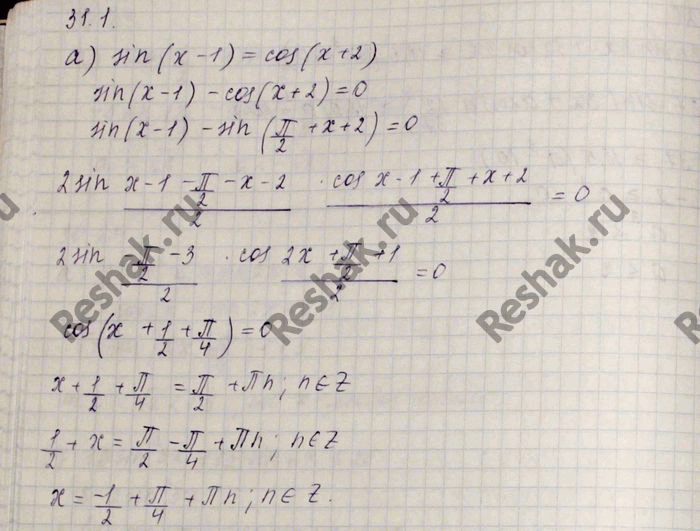 31.1.
а) sin(x-1) = cos(x+2)
sin(x-1) - cos(x+2) = 0
sin(x-1) - sin(π/2 + x+2) = 0
2sin (x-1-π/2-x-2)/2 · cos (x-1+π/2+x+2)/2 = 0
2sin (π/2-3)/2 · cos (2x+π/2+1)/2 = 0
cos(x + 1/2 + π/4) = 0
x + 1/2 + π/4 = π/2 + πn; n∈Z
1/2 + x = π/2 - π/4 + πn; n∈Z
x = -1/2 + π/4 + πn; n∈Z.
Reshak.ru
Reshak.ru
Reshak.ru